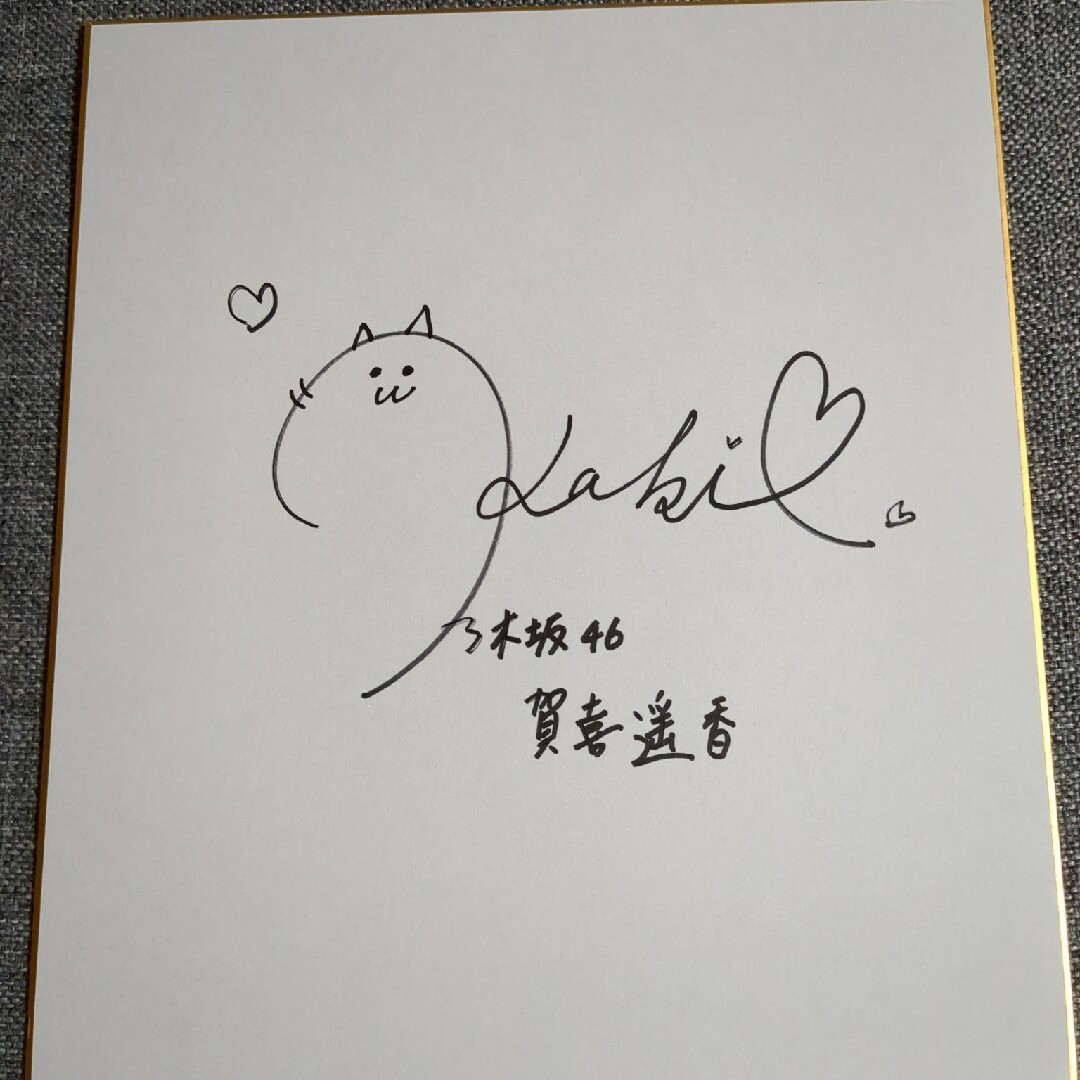 Kaki
乃木坂46
賀喜遥香